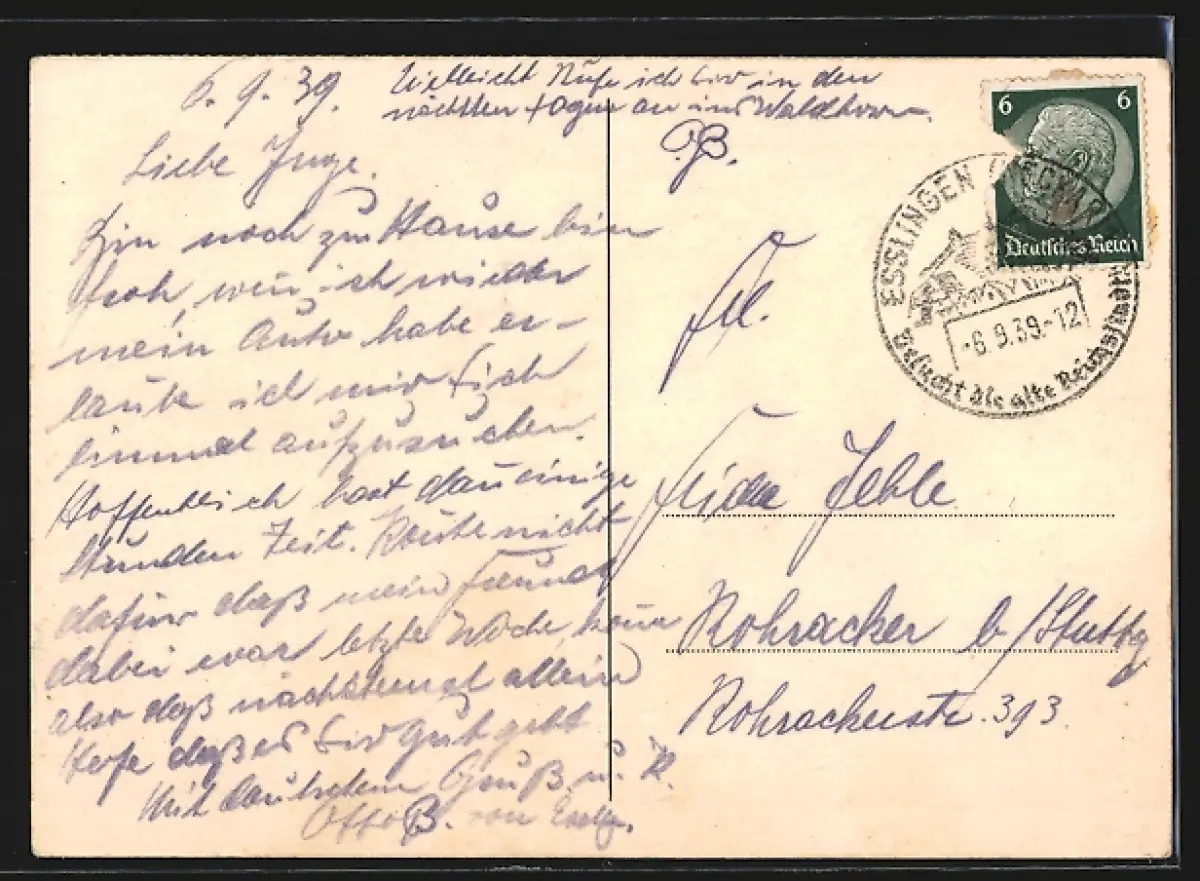 6.9.39.
Vielleicht Rufe ich Dir in den
nächsten tagen an ins Waldhorn
O.B.
Liebe
Bin noch zu Hause bin
froh, wen ich wieder
mein Auto habe er-
laube ich mir Dich
einmal aufzusuchen.
Hoffentlich hast dan einige
Stunden Zeit. Konte nicht
dafür daß mein Freund
dabei war letzte Woche,
also daß nächstemal allein
Hofe daß es Dir gut geht
Mit Deutschem Gruß u. K.
Otto B. von
Frl.
Frida Jehle
Rohracker b/Stuttg
Rohrackerstr. 393.
6 6
Deutsches Reich
ESSLINGEN (NECKAR)
-6.9.39.-12
Besucht die alte Reichsstadt